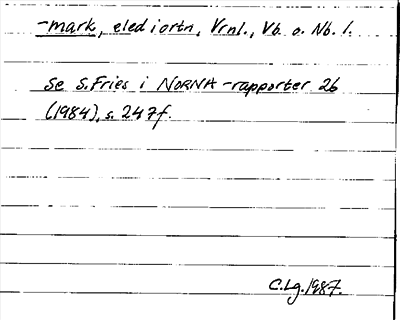 -mark, eled i ortn, Vrml., Vb. o. Nb. l.
Se S. Fries i NORNA-rapporter 26
(1984), s. 247f.
C.Lg. 1987.